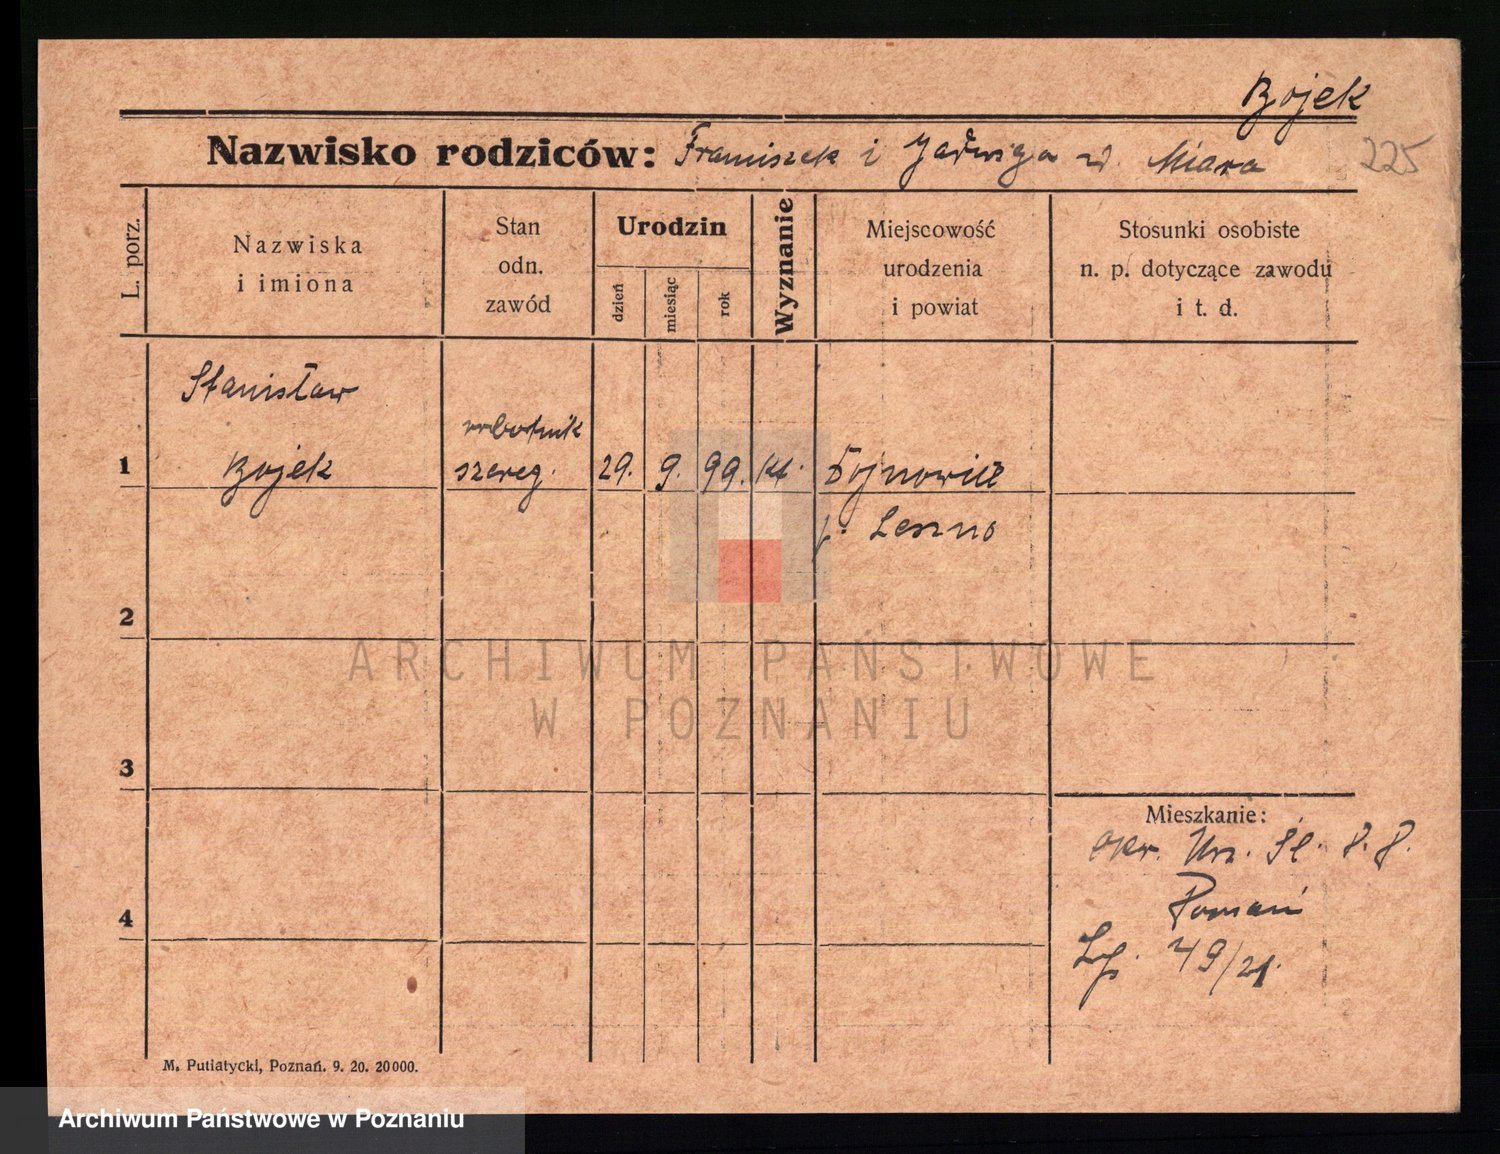 Bojek
Nazwisko rodziców: Franciszek i Jadwiga z d. Miara
225
L. porz.
Nazwiska
i imiona
Stan
odn.
zawód
Urodzin
dzień
miesiąc
rok
Wyznanie
Miejscowość
urodzenia
i powiat
Stosunki osobiste
n. p. dotyczące zawodu
i t. d.
Stanisław
robotnik
1 Bojek szereg. 29. 9. 99. kt.
p. Leszno
2
ARCHIWUM PAŃSTWOWE
W POZNANIU
3
Mieszkanie:
Okr. Urz. Śl. P. P.
4
Poznań
Lp. 49/21.
M. Putiatycki, Poznań. 9. 20. 20000.
Archiwum Państwowe w Poznaniu